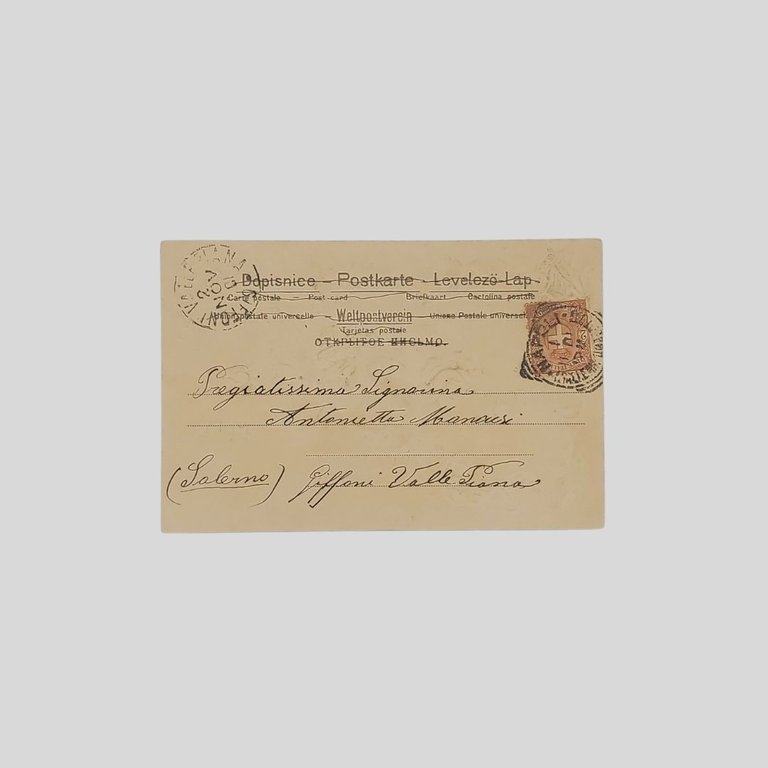 Dopisnice – Postkarte – Levelezö-Lap
Carte postale – Post-card Briefkaart – Cactolina postale
postale universelle Weltpostverein Unione Postale universale
Tarjetas postale
ОТКРЫТОЕ ПИСЬМО.
VALLE PIANA
NAPOLI
Pregiatissima Signorina
Antonietta Mancusi
(Salerno) Giffoni Valle Piana